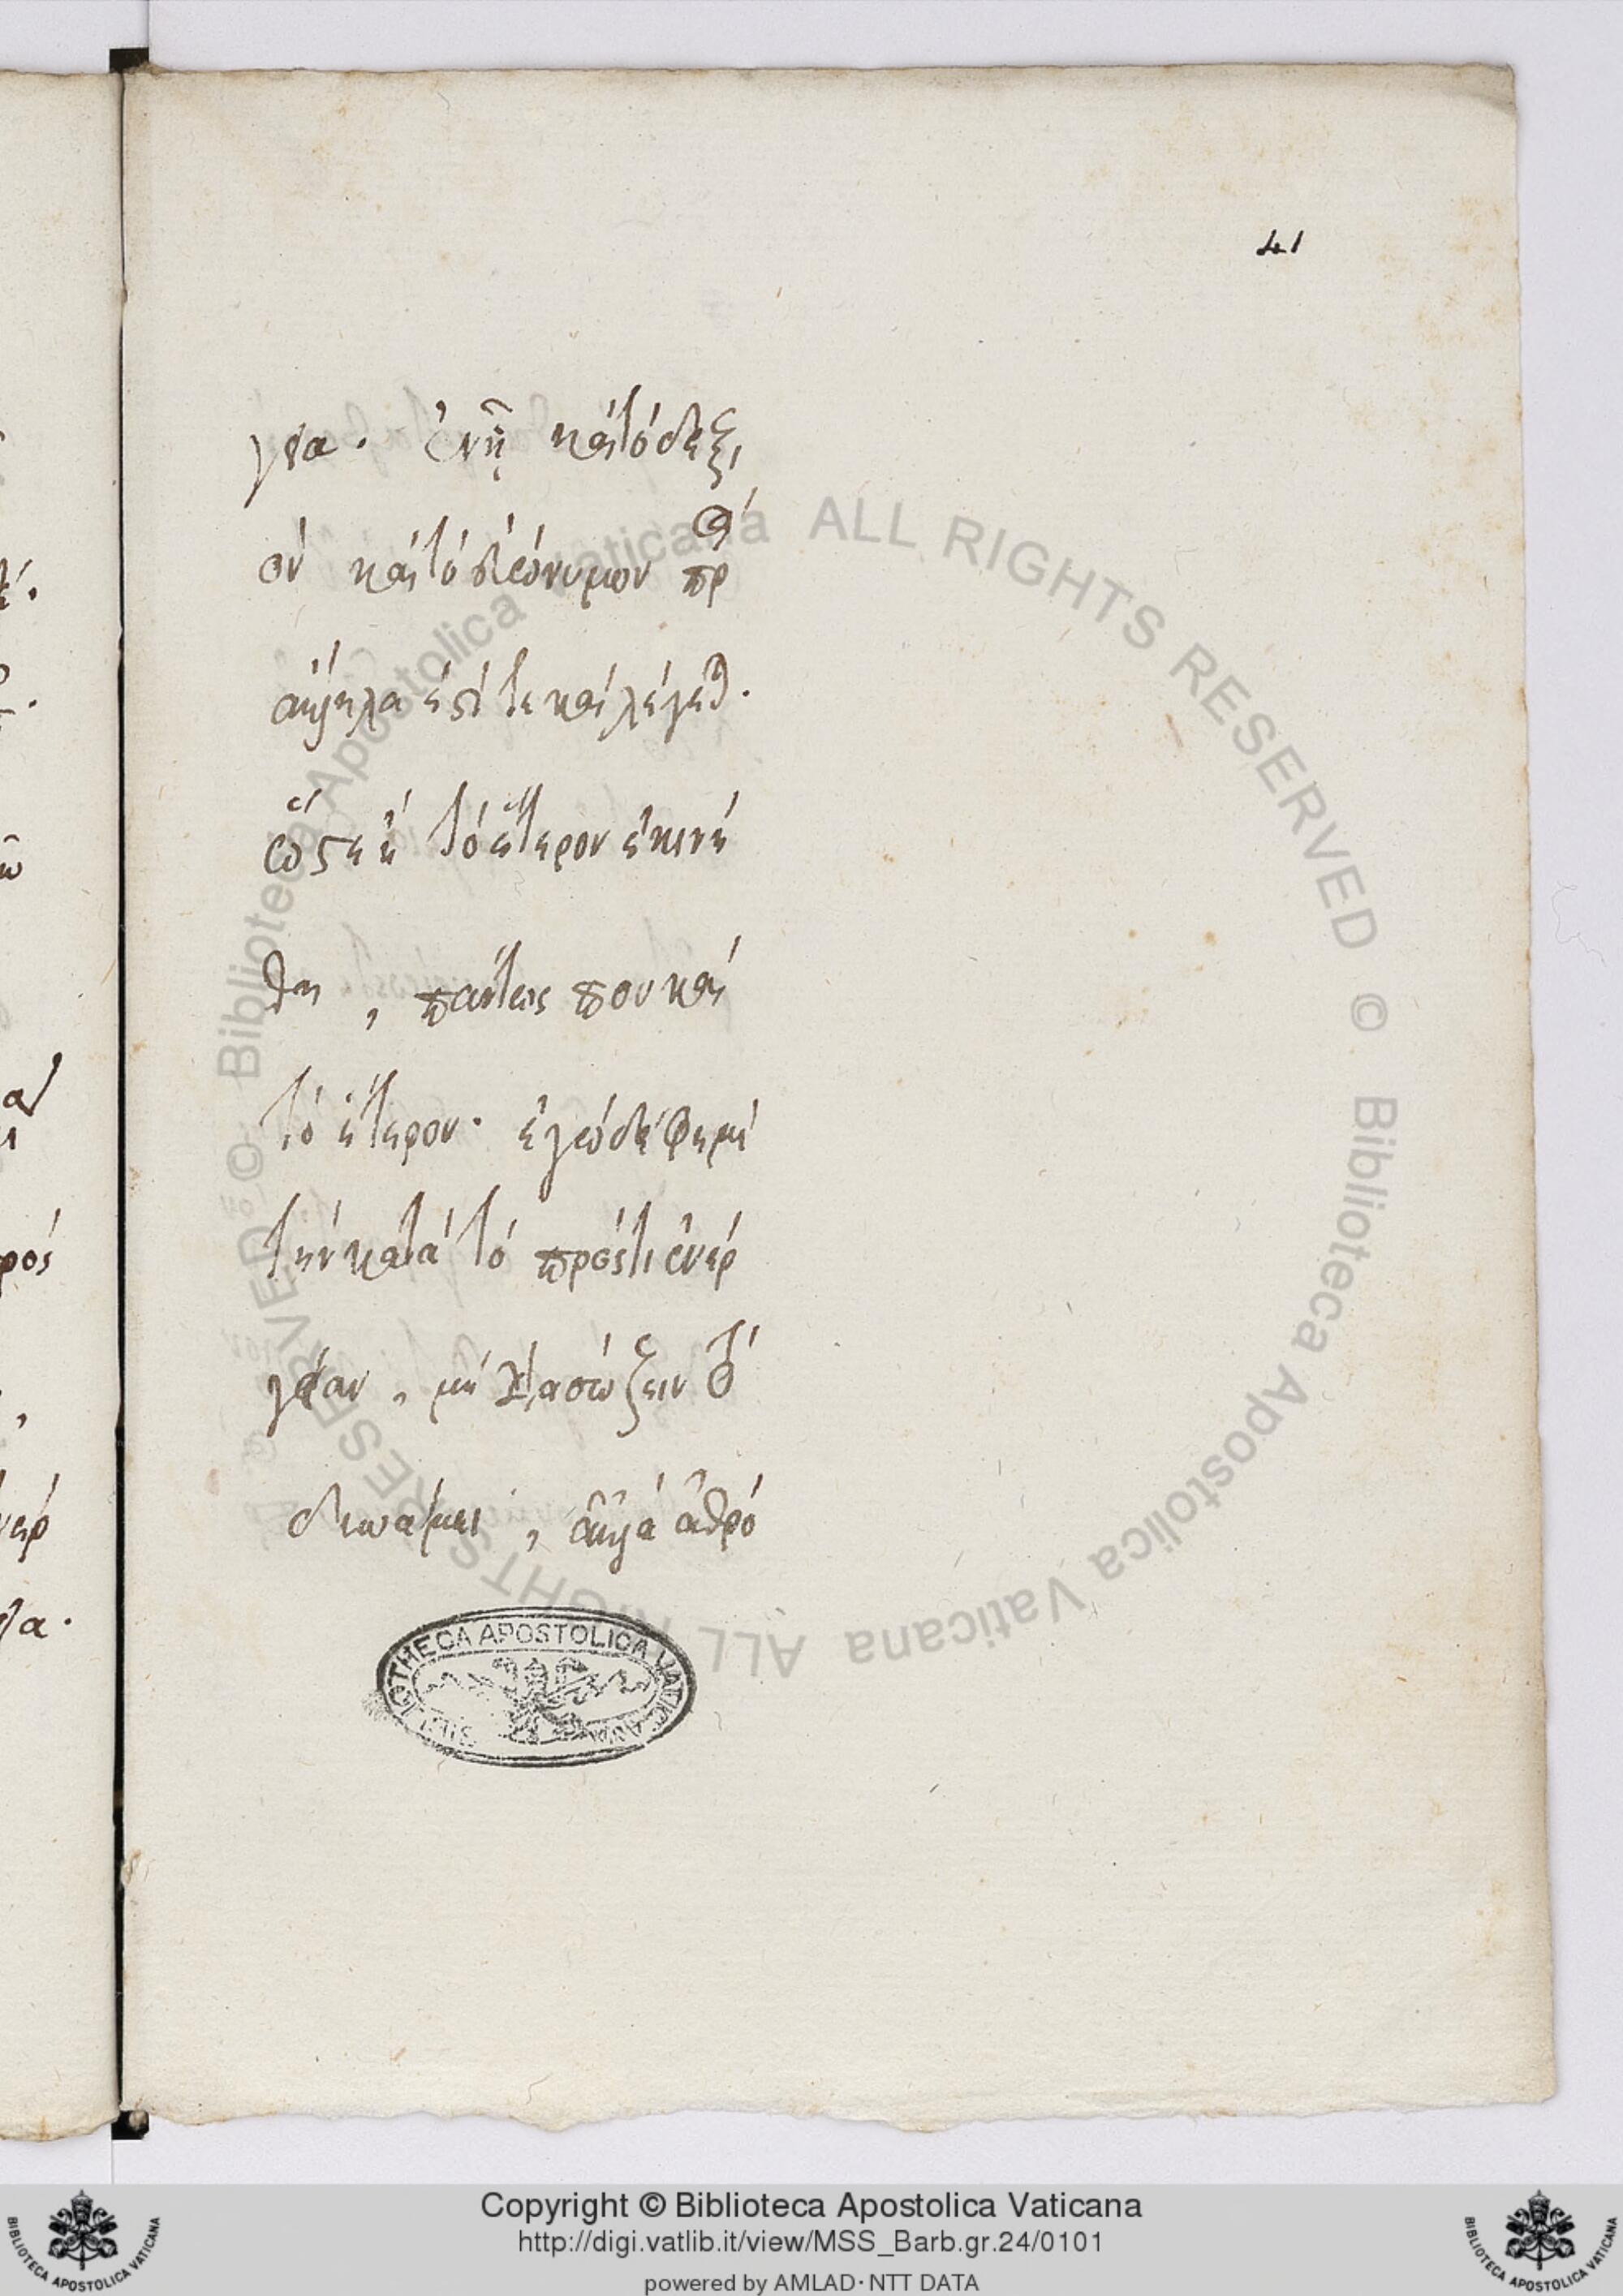 41
γεια. ἐν ᾗ καὶ τὸ δεξι
ὸν καὶ τὸ εὐώνυμον πρὸς
ἄλληλα ἐστί τε καὶ λέγεται.
ὥστε εἰ τὸ ἕτερον ἐκινή
θη, πάντως που καὶ
τὸ ἕτερον. ἐγὼ δέ φημι
τὴν κατὰ τὸ πρός τι ἐνέρ
γειαν, μὴ διασώζειν
δυνάμει, ἀλλὰ ἀθρό
BIBLIOTHECA APOSTOLICA VATICANA
© Biblioteca Apostolica Vaticana ALL RIGHTS RESERVED © Biblioteca Apostolica Vaticana ALL RIGHTS RESERVED
Copyright © Biblioteca Apostolica Vaticana
http://digi.vatlib.it/view/MSS_Barb.gr.24/0101
powered by AMLAD·NTT DATA
BIBLIOTECA APOSTOLICA VATICANA
BIBLIOTECA APOSTOLICA VATICANA